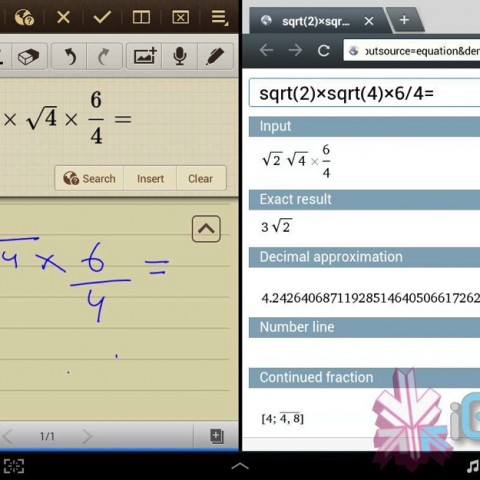 × √4 × 6/4 =
Search Insert Clear
4 × 6/4 =
1/1
sqrt(2)×sqr...
outsource=equation&der
sqrt(2)×sqrt(4)×6/4=
Input
√2 √4 × 6/4
Exact result
3 √2
Decimal approximation
4.2426406871192851464050661726
Number line
Continued fraction
[4; 4, 8]
iG